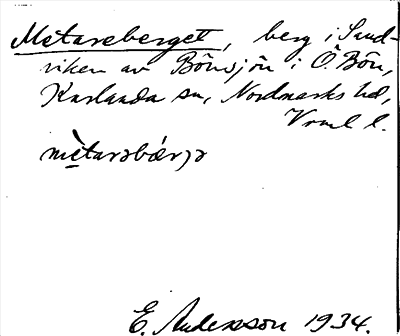 Metareberget, berg i Sand-
viken av Bönsjön i Ö. Bön,
Karlanda sn, Nordmarks hd,
Vrml l.
mètarəbærjə
E. Andersson 1934.